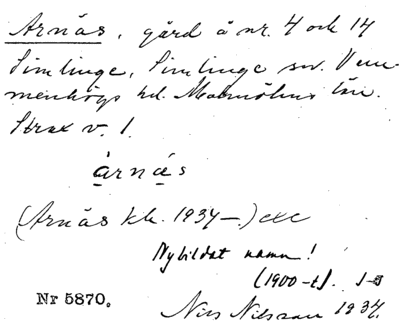 Arnäs, gård å nr. 4 och 14
Simlinge, Simlinge sn. Vem-
menhögs hd. Malmöhus län.
Strax v. 1.
àrnæs
(Arnäs kk. 1934—) etc
Nybildat namn!
(1900-t).
Nr 5870.
Nils Nilsson 1934.